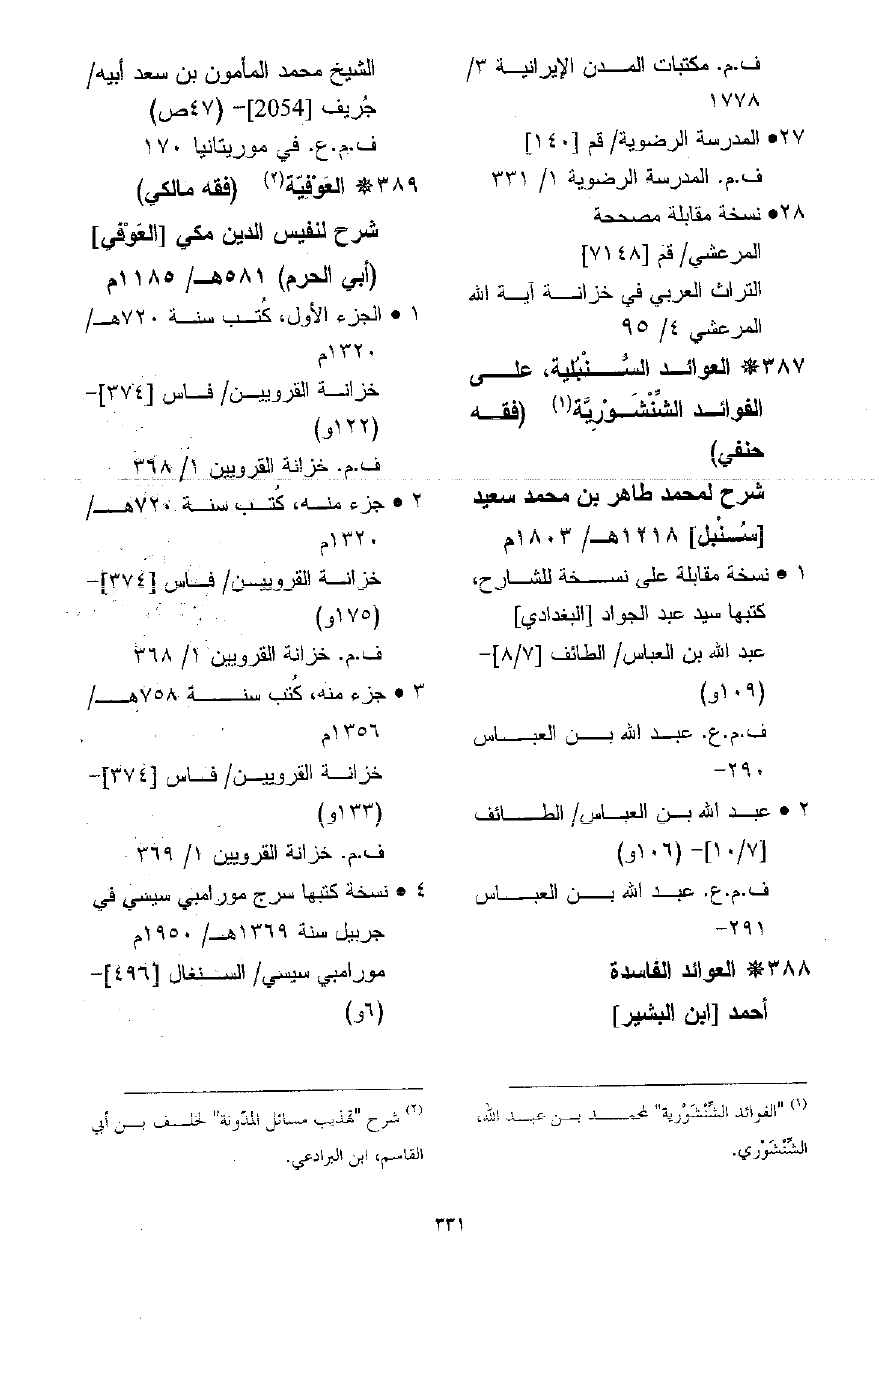 ف.م. مكتبات المدن الإيرانية ٣/
١٧٧٨
٢٧• المدرسة الرضوية/ قم [١٤٠]
ف.م. المدرسة الرضوية ١/ ٣٣١
٢٨• نسخة مقابلة مصححة
المرعشي/ قم [٧١٤٨]
التراث العربي في خزانة آية الله
المرعشي ٤/ ٩٥
٣٨٧* العوائد السُّنْبُلية، على
الفوائد الشِّنْشَوْرِيَّة(١) (فقه
حنفي)
شرح لمحمد طاهر بن محمد سعيد
[سُنْبل] ١٢١٨هـ/ ١٨٠٣م
١ • نسخة مقابلة على نسخة للشارح،
كتبها سيد عبد الجواد [البغدادي]
عبد الله بن العباس/ الطائف [٨/٧]-
(١٠٩و)
ف.م.ع. عبد الله بن العباس
٢٩٠-
٢ • عبد الله بن العباس/ الطائف
[١٠/٧]- (١٠٦و)
ف.م.ع. عبد الله بن العباس
٢٩١-
٣٨٨* العوائد الفاسدة
أحمد [ابن البشير]
الشيخ محمد المأمون بن سعد أبيه/
جُريف [2054]- (٤٧ص)
ف.م.ع. في موريتانيا ١٧٠
٣٨٩* العَوْفيَّة(٢) (فقه مالكي)
شرح لنفيس الدين مكي [العَوْفي]
(أبي الحرم) ٥٨١هـ/ ١١٨٥م
١ • الجزء الأول، كُتب سنة ٧٢٠هـ/
١٣٢٠م
خزانة القرويين/ فاس [٣٧٤]-
(١٢٢و)
ف.م. خزانة القرويين ١/ ٣٦٨
٢ • جزء منه، كُتب سنة ٧٢٠هـ/
١٣٢٠م
خزانة القرويين/ فاس [٣٧٤]-
(١٧٥و)
ف.م. خزانة القرويين ١/ ٣٦٨
٣ • جزء منه، كُتب سنة ٧٥٨هـ/
١٣٥٦م
خزانة القرويين/ فاس [٣٧٤]-
(١٣٣و)
ف.م. خزانة القرويين ١/ ٣٦٩
٤ • نسخة كتبها سرج مورامبي سيسي في
جربيل سنة ١٣٦٩هـ/ ١٩٥٠م
مورامبي سيسي/ السنغال [٤٩٦]-
(٦و)
(١) "الفوائد الشِّنْشَوْرية" لمحمد بن عبد الله،
الشِّنْشَوْري.
(٢) شرح "تهذيب مسائل المدّونة" لخلف بن أبي
القاسم، ابن البرادعي.
٣٣١